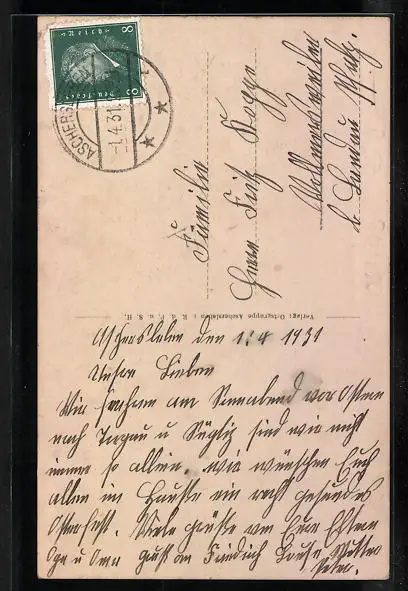 8 8
ASCHERSL
-1.4.31
Familie
Herrn Fritz Kogge
Wollmersweiler
b. Landau Pfalz
Verlag: Ortsgruppe Aschersleben
Aschersleben den 1.4 1931
Unsre Lieben
Wir fahren am Sonnabend vor Ostern
nach Torgau u sind wir nicht
immer so allein. wir wünschen Euch
allen im Hause ein recht gesundes
Osterfest. Viele Grüße von Eure Eltern
Opa u Oma Gruß an Friedrich Louise Mutter
Peter.